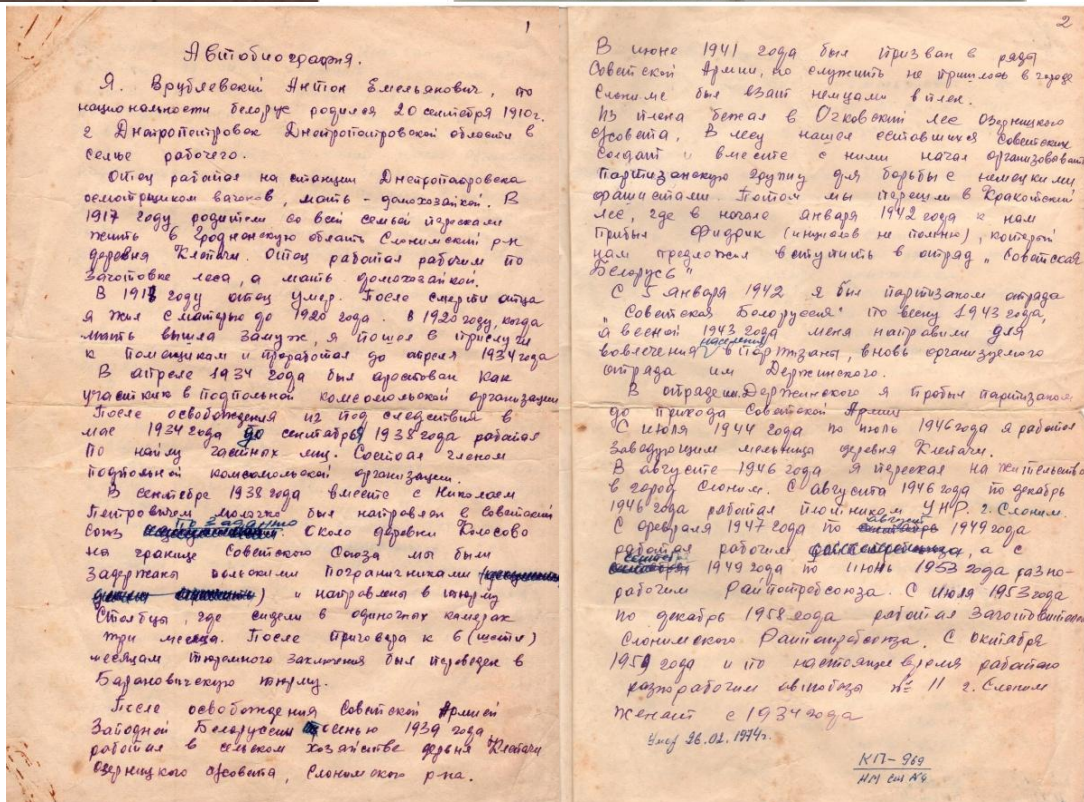 1
Автобиография.
Я. Врублевский Антон Емельянович, по
национальности белорус родился 20 сентября 1910г.
г Днепропетровск Днепропетровской области в
семье рабочего.
Отец работал на станции Днепропетровска
осмотрщиком вагонов, мать - домохозайкой. В
1917 году родители со всей семьой переехали
жить в Гродненскую область Слонимский р-н
деревня Клепачи. Отец работал рабочим по
заготовке леса, а мать домохозайкой.
В 1918 году отец умер. После смерти отца
я жил с матерью до 1920 года. в 1920 году, когда
мать вышла замуж, я пошел в прислуги
к помещикам и проработал до апреля 1934 года
В апреле 1934 года был арестован как
участник в подпольной комсомольской организации
После освобождения из под следствия в
мае 1934 года до сентября 1938 года работал
по найму частных лиц. Состоял членом
подпольной комсомольской организации.
В сентябре 1938 года вместе с Николаем
Петровичем был направлен в Советский
союз по заданию. Около деревни Колосово
на границе Советского Союза мы были
задержаны польскими пограничниками
и направлены в тюрму
Столбцы, где сидели в одиночных камерах
три месяца. После приговора к 6 (шести)
месяцам тюремного заключения был переведен в
Барановичскую тюрму.
После освобождения Советской Армией
Западной Белоруссии осенью 1939 года
работал в сельском хозяйстве деревня Клепачи
Озерницкого с/совета, Слонимского р-на.
2
В июне 1941 года был призван в ряды
Советской Армии, но служить не пришлось в городе
Слониме был взят немцами в плен.
Из плена бежал в Очковский лес Озерницкого
с/совета. В лесу нашел оставшихся Советских
солдат и вместе с ними начал организовывать
партизанскую группу для борьбы с немецкими
фашистами. Потом мы перешли в Краковский
лес, где в начале января 1942 года к нам
прибыл Фидрик (инциалов не помню), который
нам предложил вступить в отряд „Советская
Белорусь"
С 5 января 1942 я был партизаном отряда
„Советская Белоруссия" по весну 1943 года,
а весной 1943 года меня направили для
вовлечения населения в партизаны, вновь организуемого
отряда им Держинского.
В отряде им. Держинского я пробыл партизаном
до прихода Советской Армии
С июля 1944 года по июль 1946 года я работал
Заведующим мельницы деревня Клепачи.
В августе 1946 года я переехал на жительство
в город Слоним. С августа 1946 года по декабрь
1946 года работал плотником УНР. г. Слоним.
С февраля 1947 года по август 1949 года
работал рабочим, а с
1949 года по июнь 1953 года разно-
рабочим Райпотребсоюза. С июля 1953 года
по декабрь 1958 года работал
Слонимского Райпотребсоюза. С октября
1959 года и по настоящие время работаю
разнорабочим автобазы № 11 г. Слоним
Женат с 1934 года
Умер 26.02.1974г.
КП-969